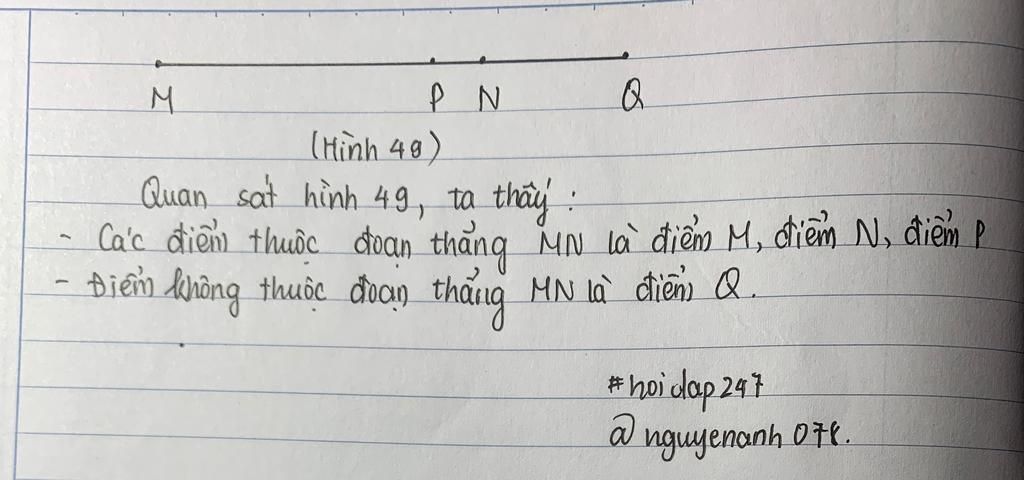 M P N Q
(Hình 49)
Quan sát hình 49, ta thấy :
- Các điểm thuộc đoạn thẳng MN là điểm M, điểm N, điểm P
- Điểm không thuộc đoạn thẳng MN là điểm Q.
#hoidap247
@nguyenanh078.